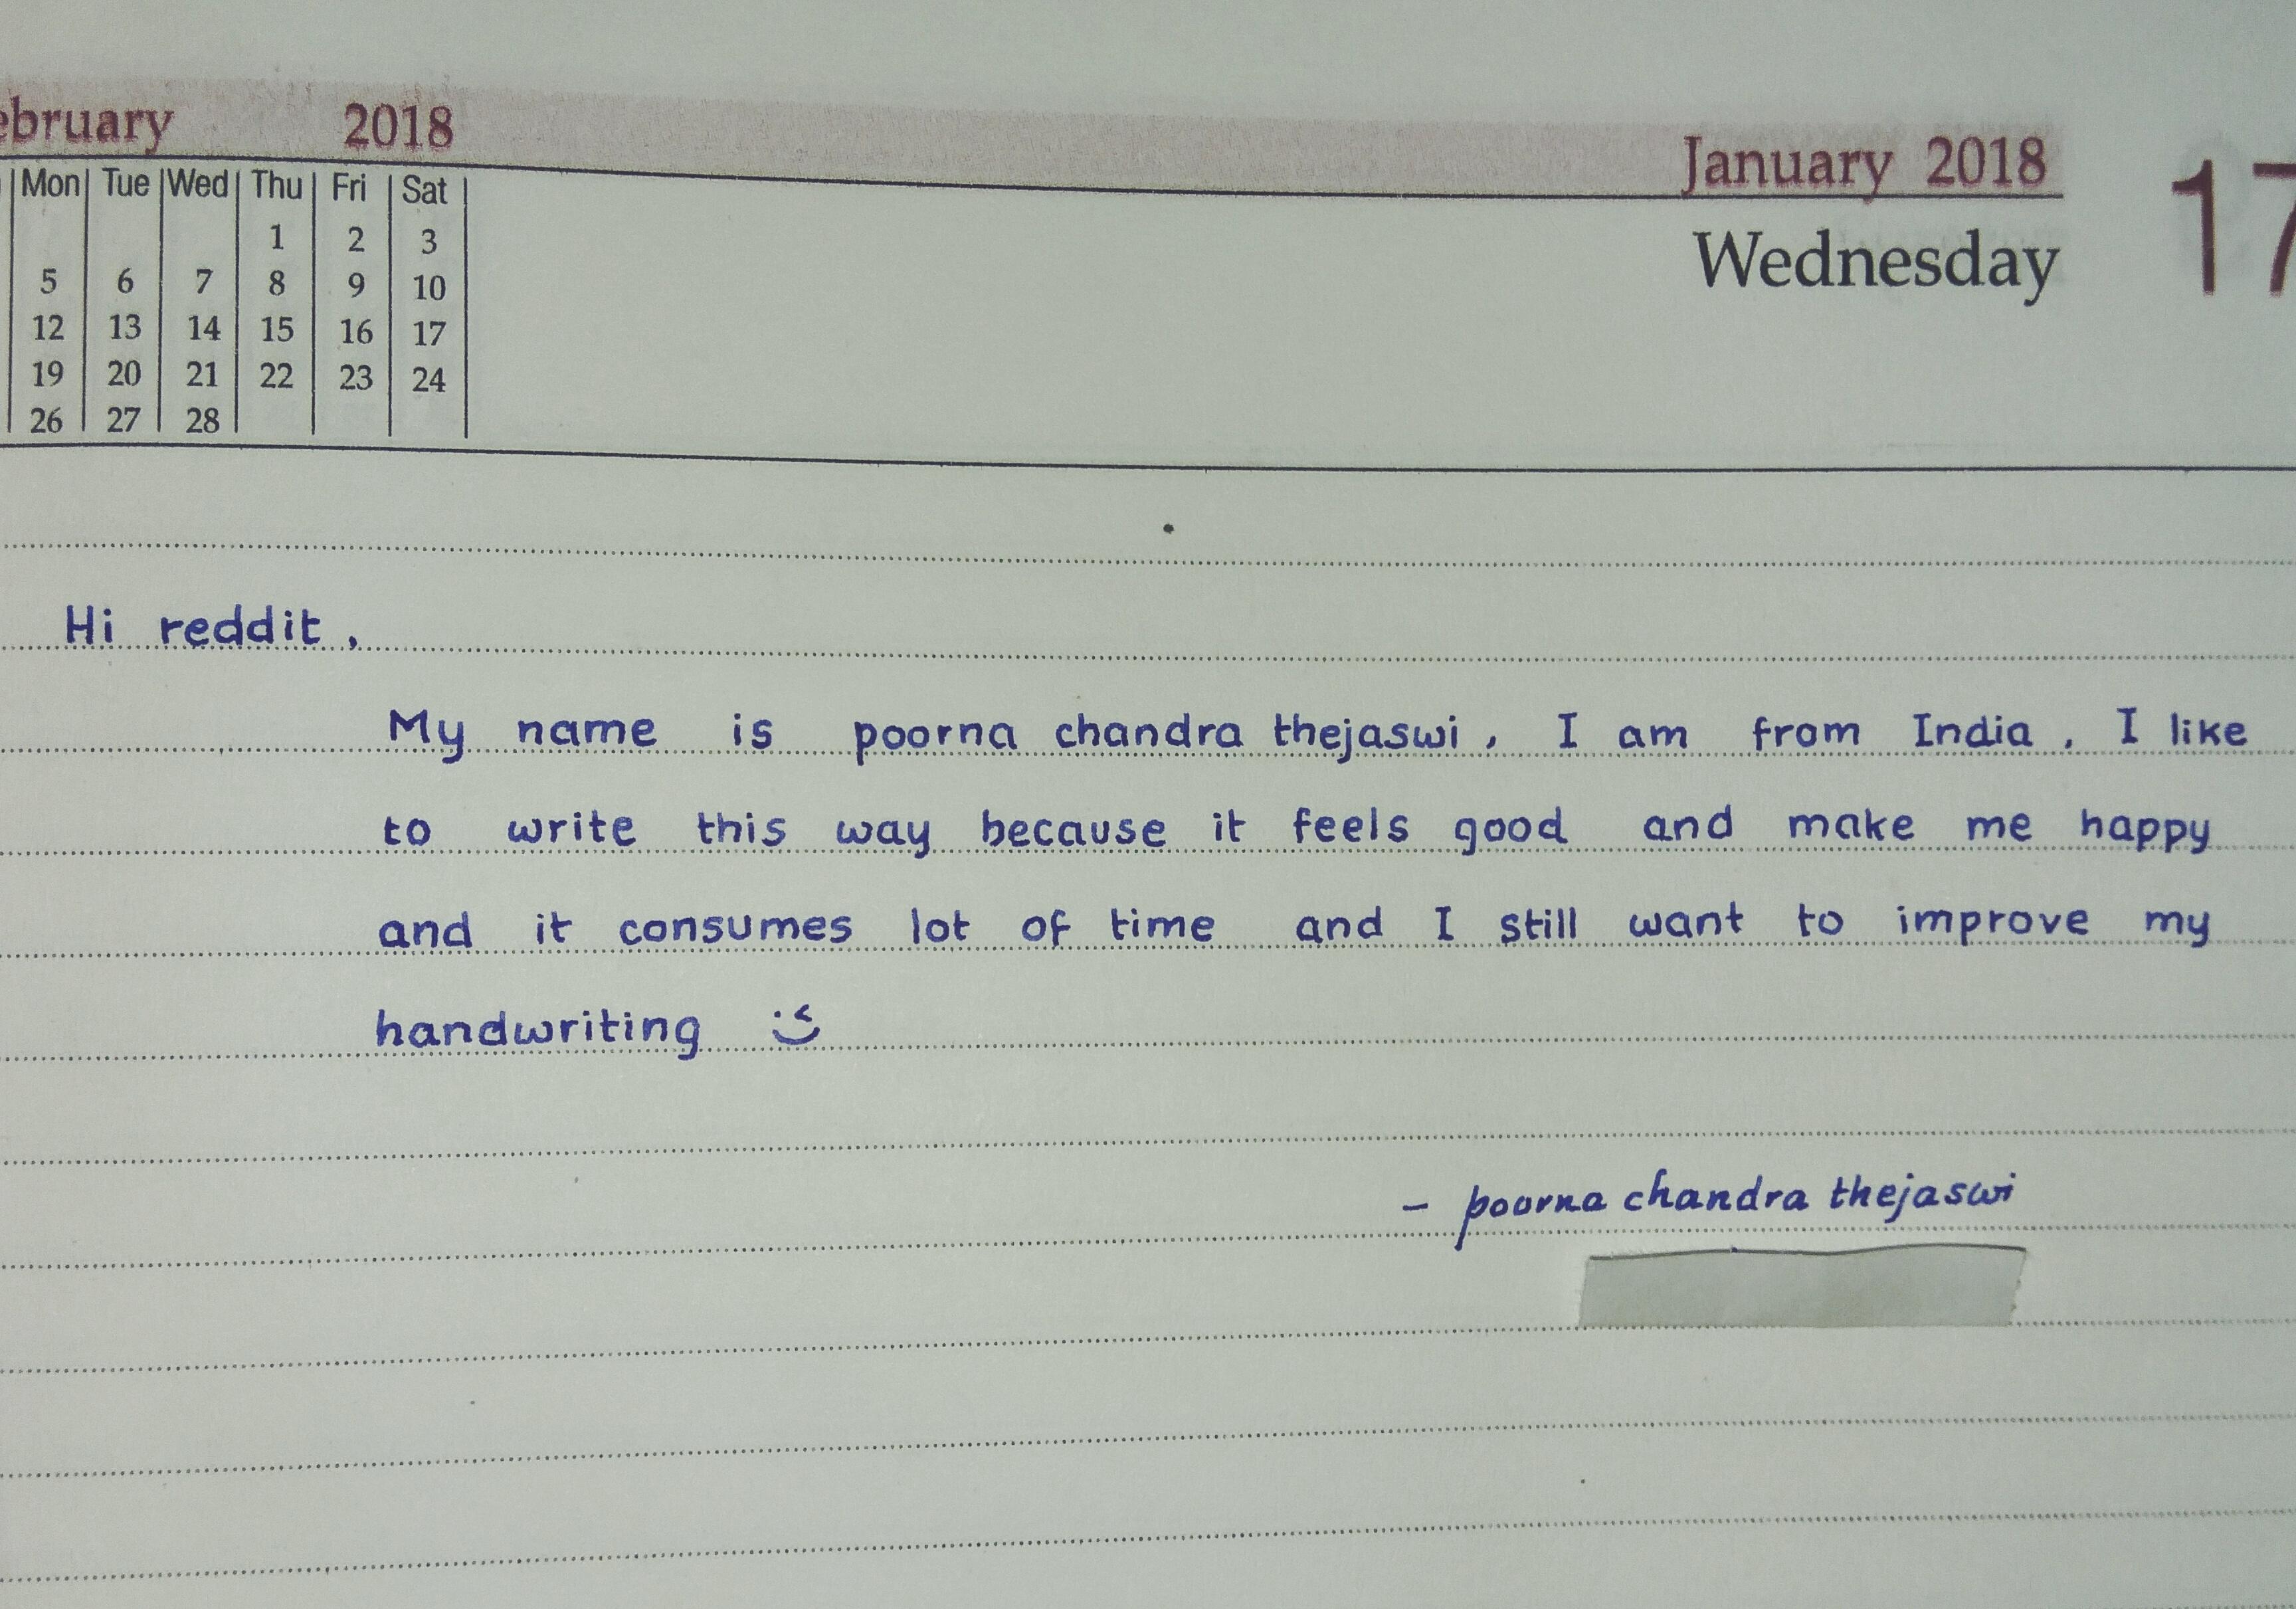 ebruary 2018
January 2018 17
Wednesday
Mon Tue Wed Thu Fri Sat
1 2 3
5 6 7 8 9 10
12 13 14 15 16 17
19 20 21 22 23 24
26 27 28
Hi reddit,
My name is poorna chandra thejaswi, I am from India. I like
to write this way because it feels good and make me happy
and it consumes lot of time and I still want to improve my
handwriting
- poorna chandra thejaswi